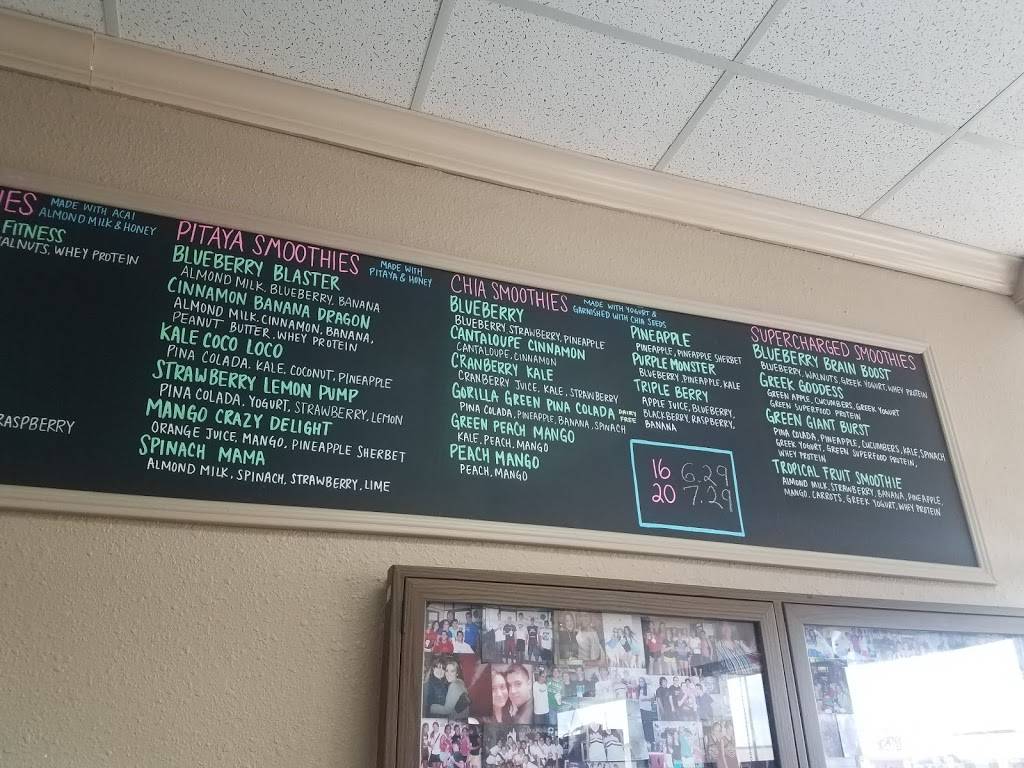 IES MADE WITH ACAI
ALMOND MILK & HONEY
FITNESS
WALNUTS, WHEY PROTEIN
RASPBERRY
PITAYA SMOOTHIES MADE WITH
PITAYA & HONEY
BLUEBERRY BLASTER
ALMOND MILK, BLUEBERRY, BANANA
CINNAMON BANANA DRAGON
ALMOND MILK, CINNAMON, BANANA,
PEANUT BUTTER, WHEY PROTEIN
KALE COCO LOCO
PINA COLADA, KALE, COCONUT, PINEAPPLE
STRAWBERRY LEMON PUMP
PINA COLADA, YOGURT, STRAWBERRY, LEMON
MANGO CRAZY DELIGHT
ORANGE JUICE, MANGO, PINEAPPLE SHERBET
SPINACH MAMA
ALMOND MILK, SPINACH, STRAWBERRY, LIME
CHIA SMOOTHIES MADE WITH YOGURT &
GARNISHED WITH CHIA SEEDS
BLUEBERRY
BLUEBERRY, STRAWBERRY, PINEAPPLE
CANTALOUPE CINNAMON
CANTALOUPE, CINNAMON
CRANBERRY KALE
CRANBERRY JUICE, KALE, STRAWBERRY
GORILLA GREEN PINA COLADA DAIRY
FREE
PINA COLADA, PINEAPPLE, BANANA, SPINACH
GREEN PEACH MANGO
KALE, PEACH, MANGO
PEACH MANGO
PEACH, MANGO
PINEAPPLE
PINEAPPLE, PINEAPPLE SHERBET
PURPLE MONSTER
BLUEBERRY, PINEAPPLE, KALE
TRIPLE BERRY
APPLE JUICE, BLUEBERRY,
BLACKBERRY, RASPBERRY,
BANANA
16 6.29
20 7.29
SUPERCHARGED SMOOTHIES
BLUEBERRY BRAIN BOOST
BLUEBERRY, WALNUTS, GREEK YOGURT, WHEY PROTEIN
GREEK GODDESS
GREEN APPLE, CUCUMBERS, GREEK YOGURT
GREEN SUPERFOOD PROTEIN
GREEN GIANT BURST
PINA COLADA, PINEAPPLE, CUCUMBERS, KALE, SPINACH
GREEK YOGURT, GREEN SUPERFOOD PROTEIN,
WHEY PROTEIN
TROPICAL FRUIT SMOOTHIE
ALMOND MILK, STRAWBERRY, BANANA, PINEAPPLE,
MANGO, CARROTS, GREEK YOGURT, WHEY PROTEIN